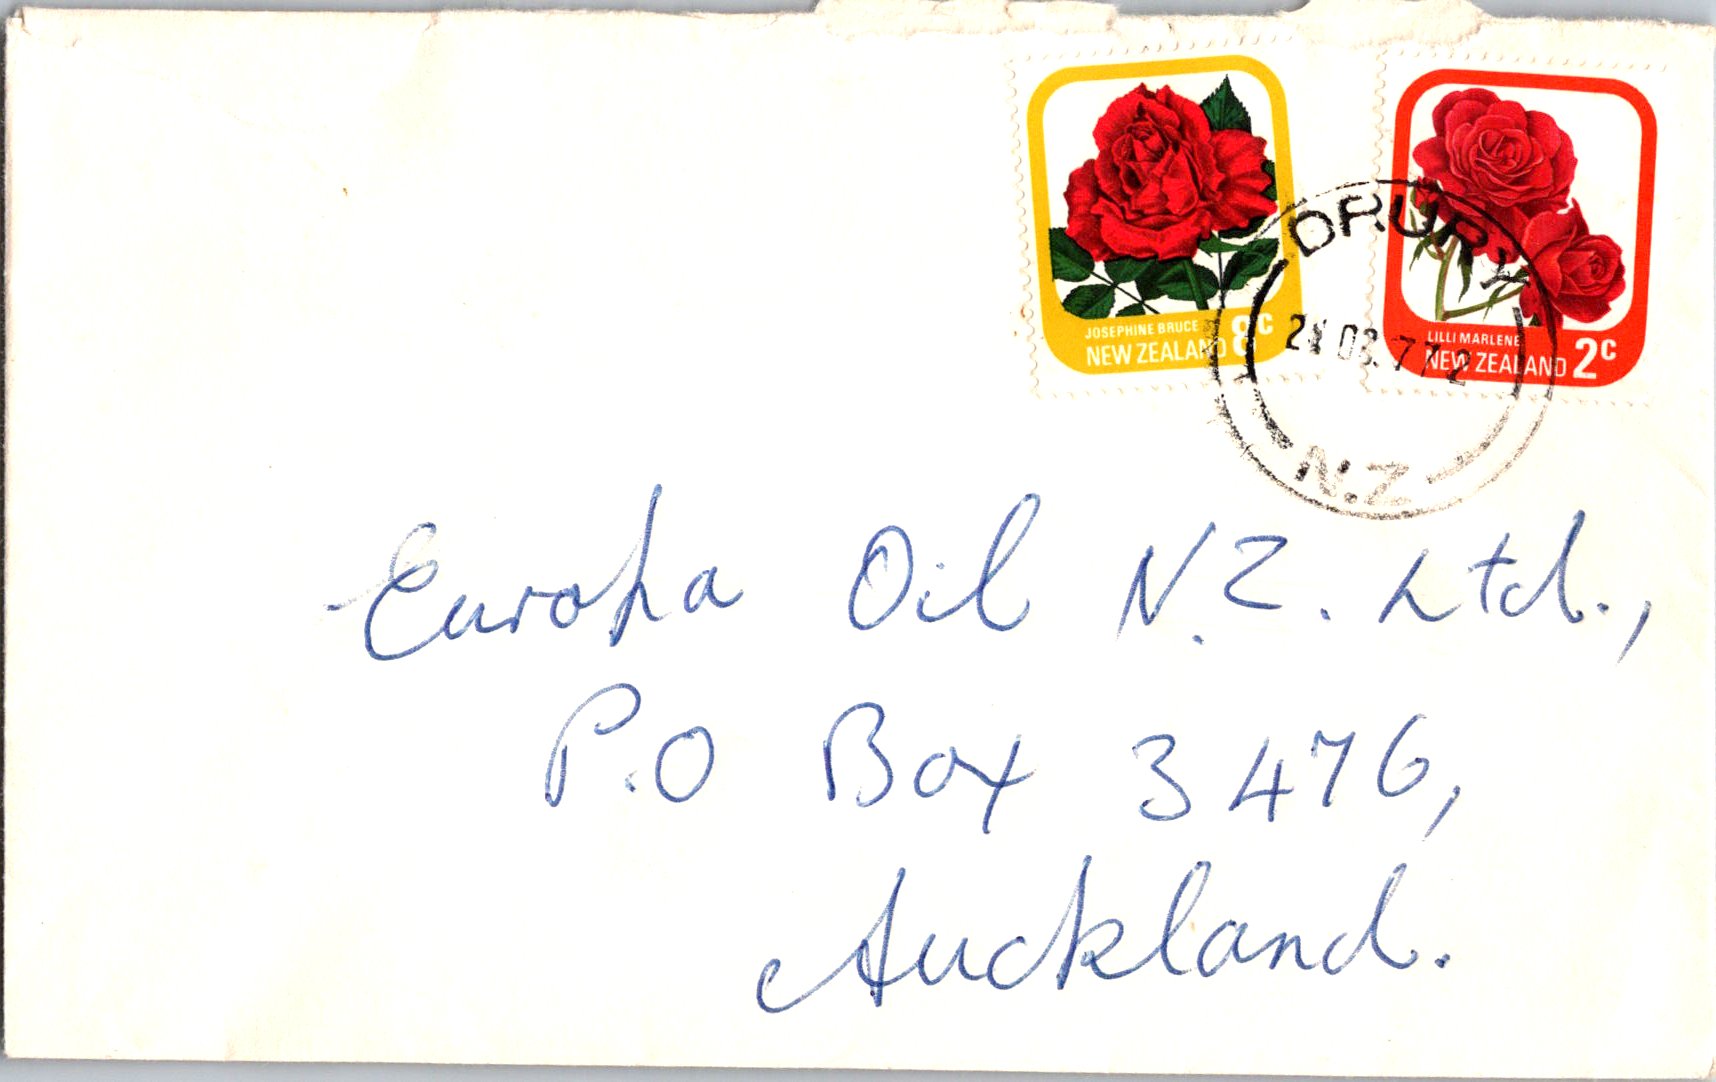 JOSEPHINE BRUCE
NEW ZEALAND 8c
LILLI MARLENE
NEW ZEALAND 2c
DRURY
N.Z
Europa Oil N.Z. Ltd.,
P.O Box 3476,
Auckland.